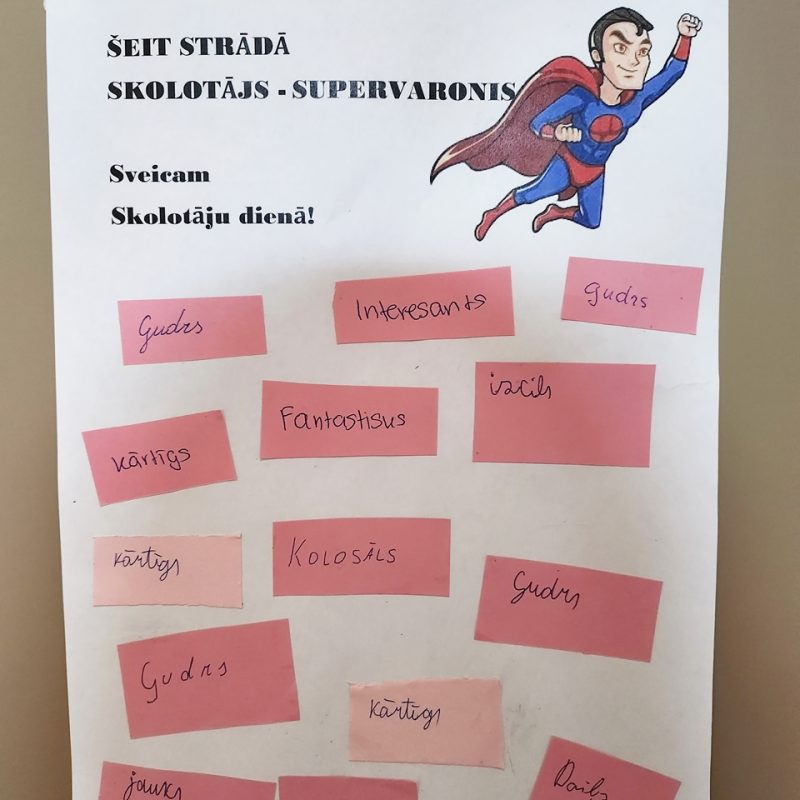 ŠEIT STRĀDĀ
SKOLOTĀJS - SUPERVARONIS
Sveicam
Skolotāju dienā!
Gudrs
Interesants
gudrs
kārtīgs
Fantastisus
izcils
kārtīgs
KOLOSĀLS
Gudrs
Gudrs
kārtīgs
jauks